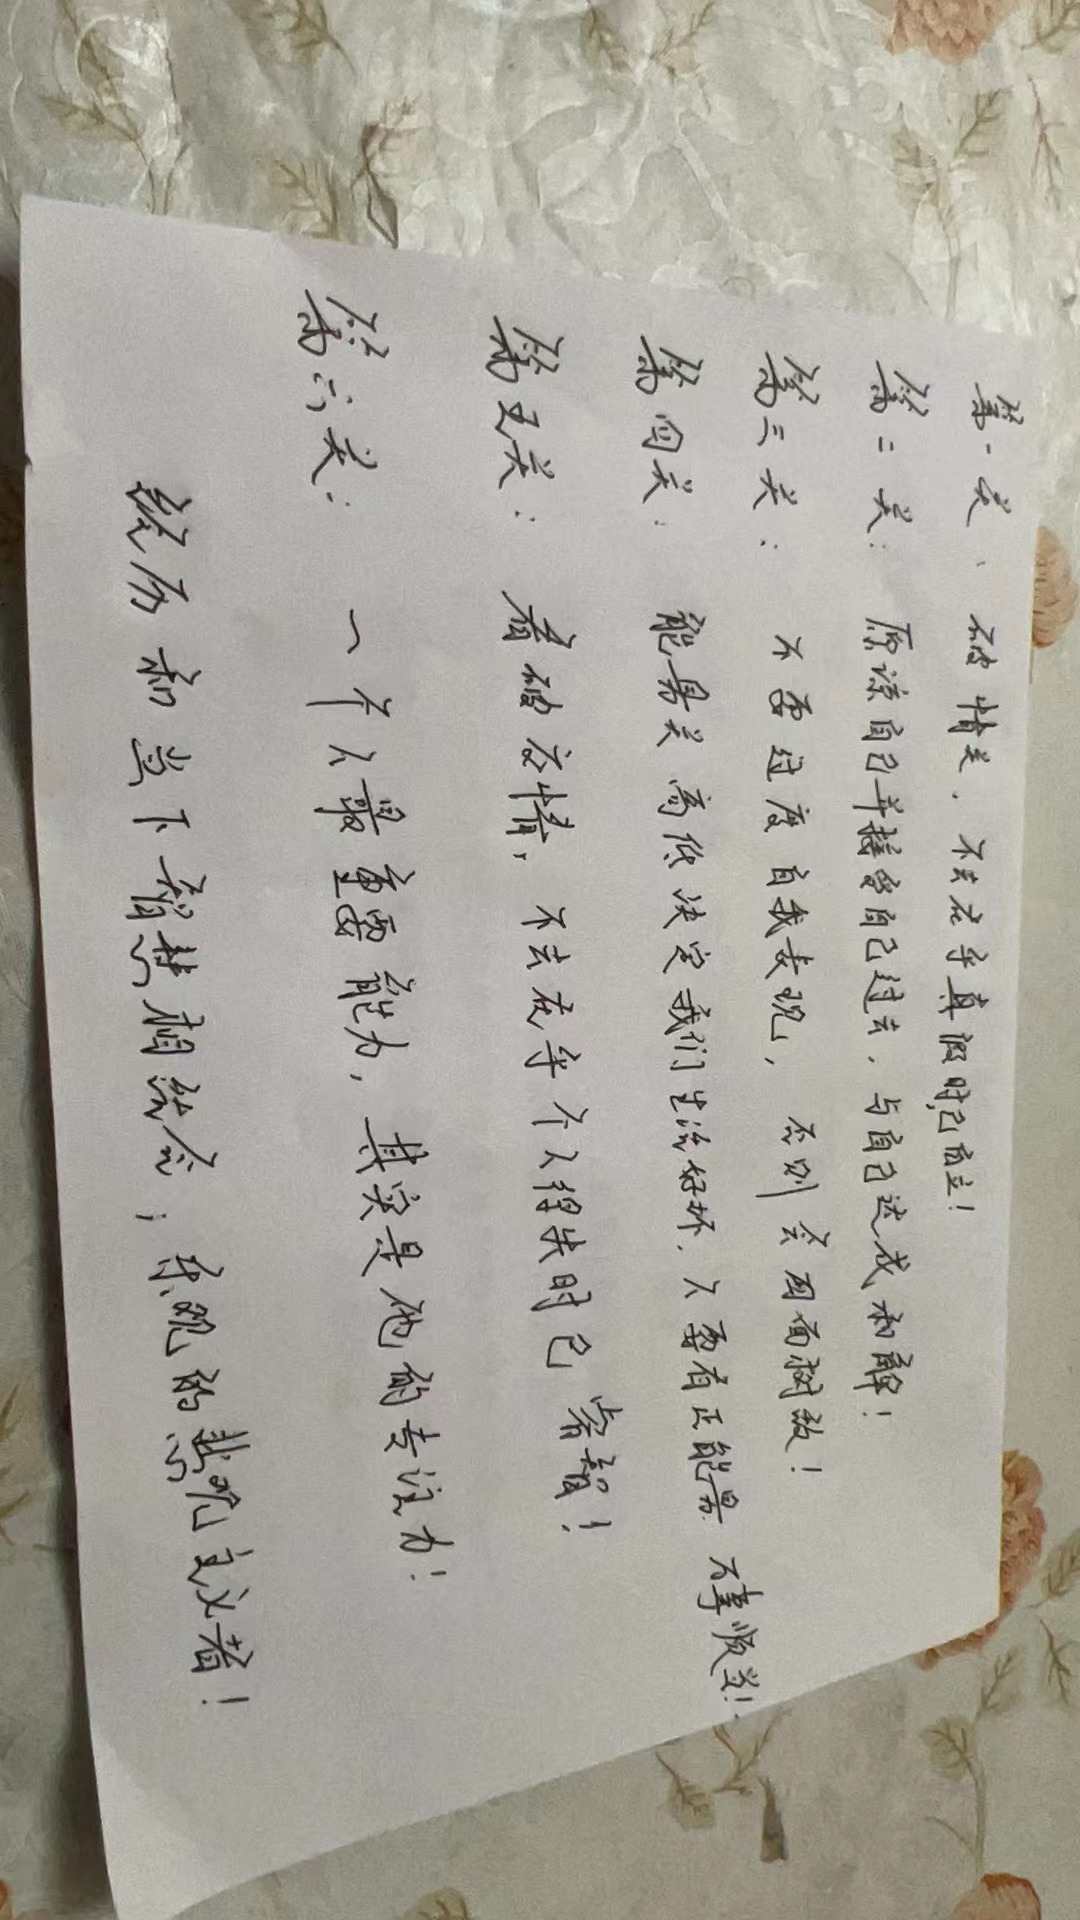 第一关、破情关、不去在乎真假时,已成立!
第二关:原谅自己并接受自己过去、与自己达成和解!
第三关:不要过度自我表现,否则会四面树敌!
第四关:能量关 高低决定我们生活好坏、人要有正能量 万事顺遂!
第五关:看破爱情,不去在乎个人得失时已 睿智!
第六关:一个人最重要能力,其实是他的专注力!
经历和当下智慧相结合;乐观的悲观主义者!